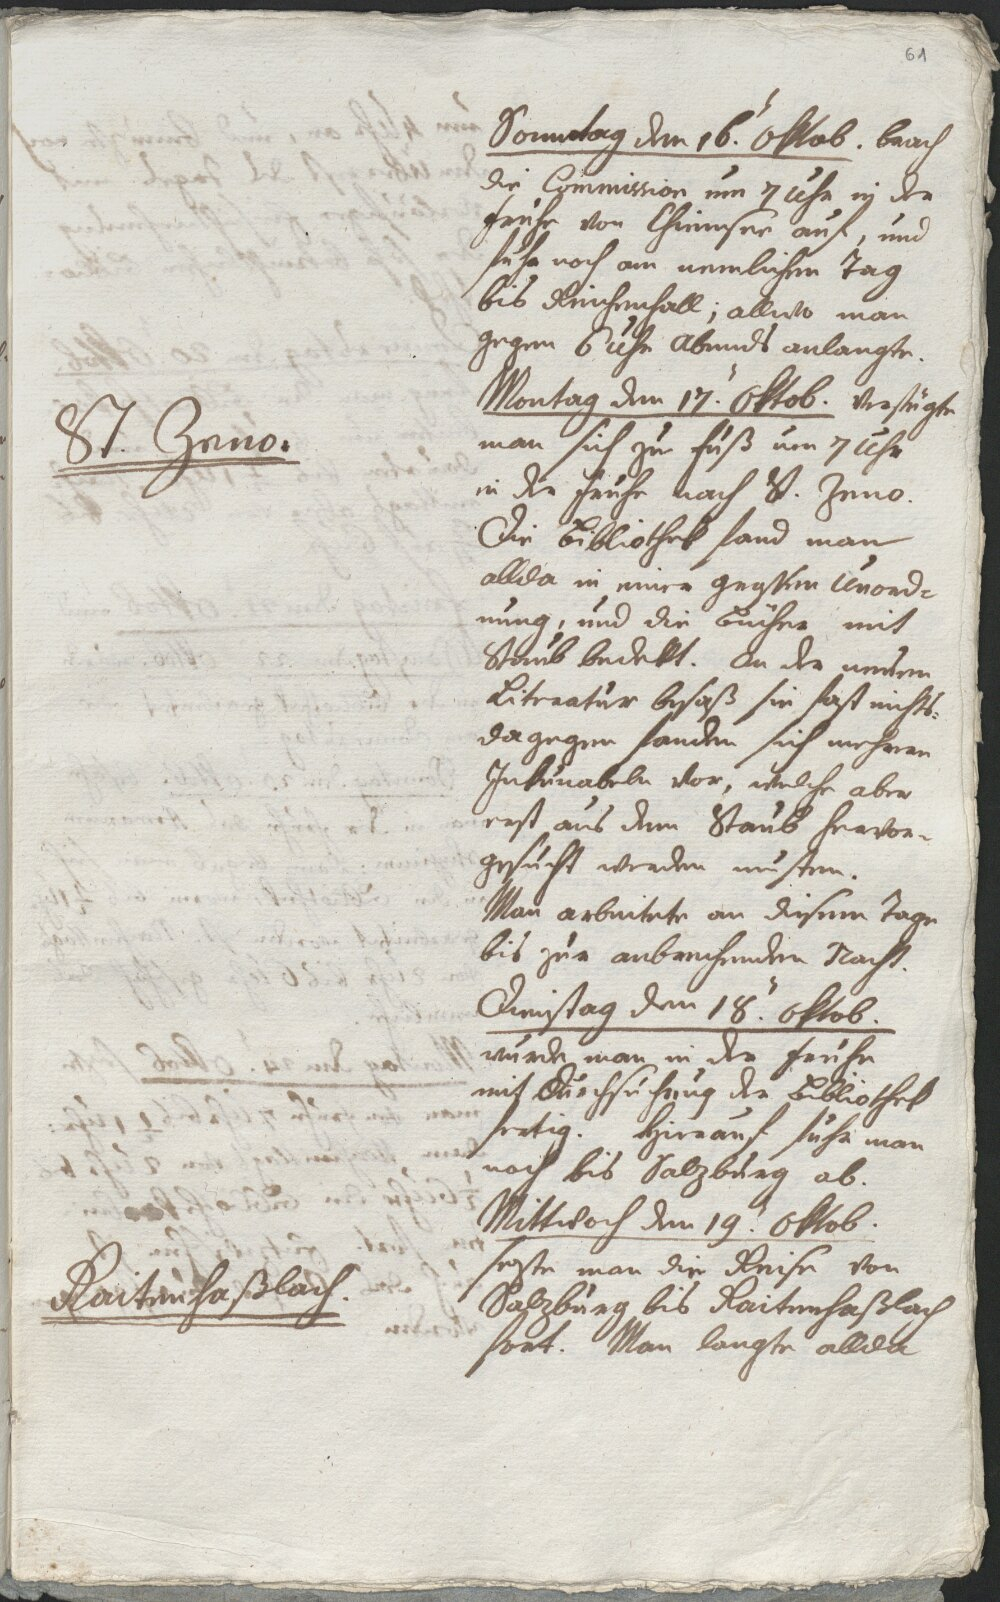 61
Sonntag den 16.' Oktob. brach
die Commission um 7 Uhr in der
Frühe von Chiemsee auf, und
fuhr noch am nemlichen Tag
bis Reichenhall; allwo man
gegen 6 Uhr Abends anlangte.
St. Zeno.
Montag den 17.' Oktob. verfügte
man sich zu Fuß um 7 Uhr
in der Frühe nach St. Zeno.
Die Bibliothek fand man
allda in einer grossen Unord=
nung, und die Bücher mit
Staub bedekt. An der neuern
Literatur besaß sie fast nichts:
dagegen fanden sich mehrere
Inkunabeln vor, welche aber
erst aus dem Staub hervor=
gesucht werden musten.
Man arbeitete an diesem Tage
bis zur anbrechenden Nacht.
Dienstag den 18.' Oktob.
wurde man in der Frühe
mit Durchsuchung der Bibliothek
fertig. Hierauf fuhr man
noch bis Salzburg ab.
Mittwoch den 19.' Oktob.
sezte man die Reise von
Raitenhaßlach.
Salzburg bis Raitenhaßlach
fort. Man langte allda